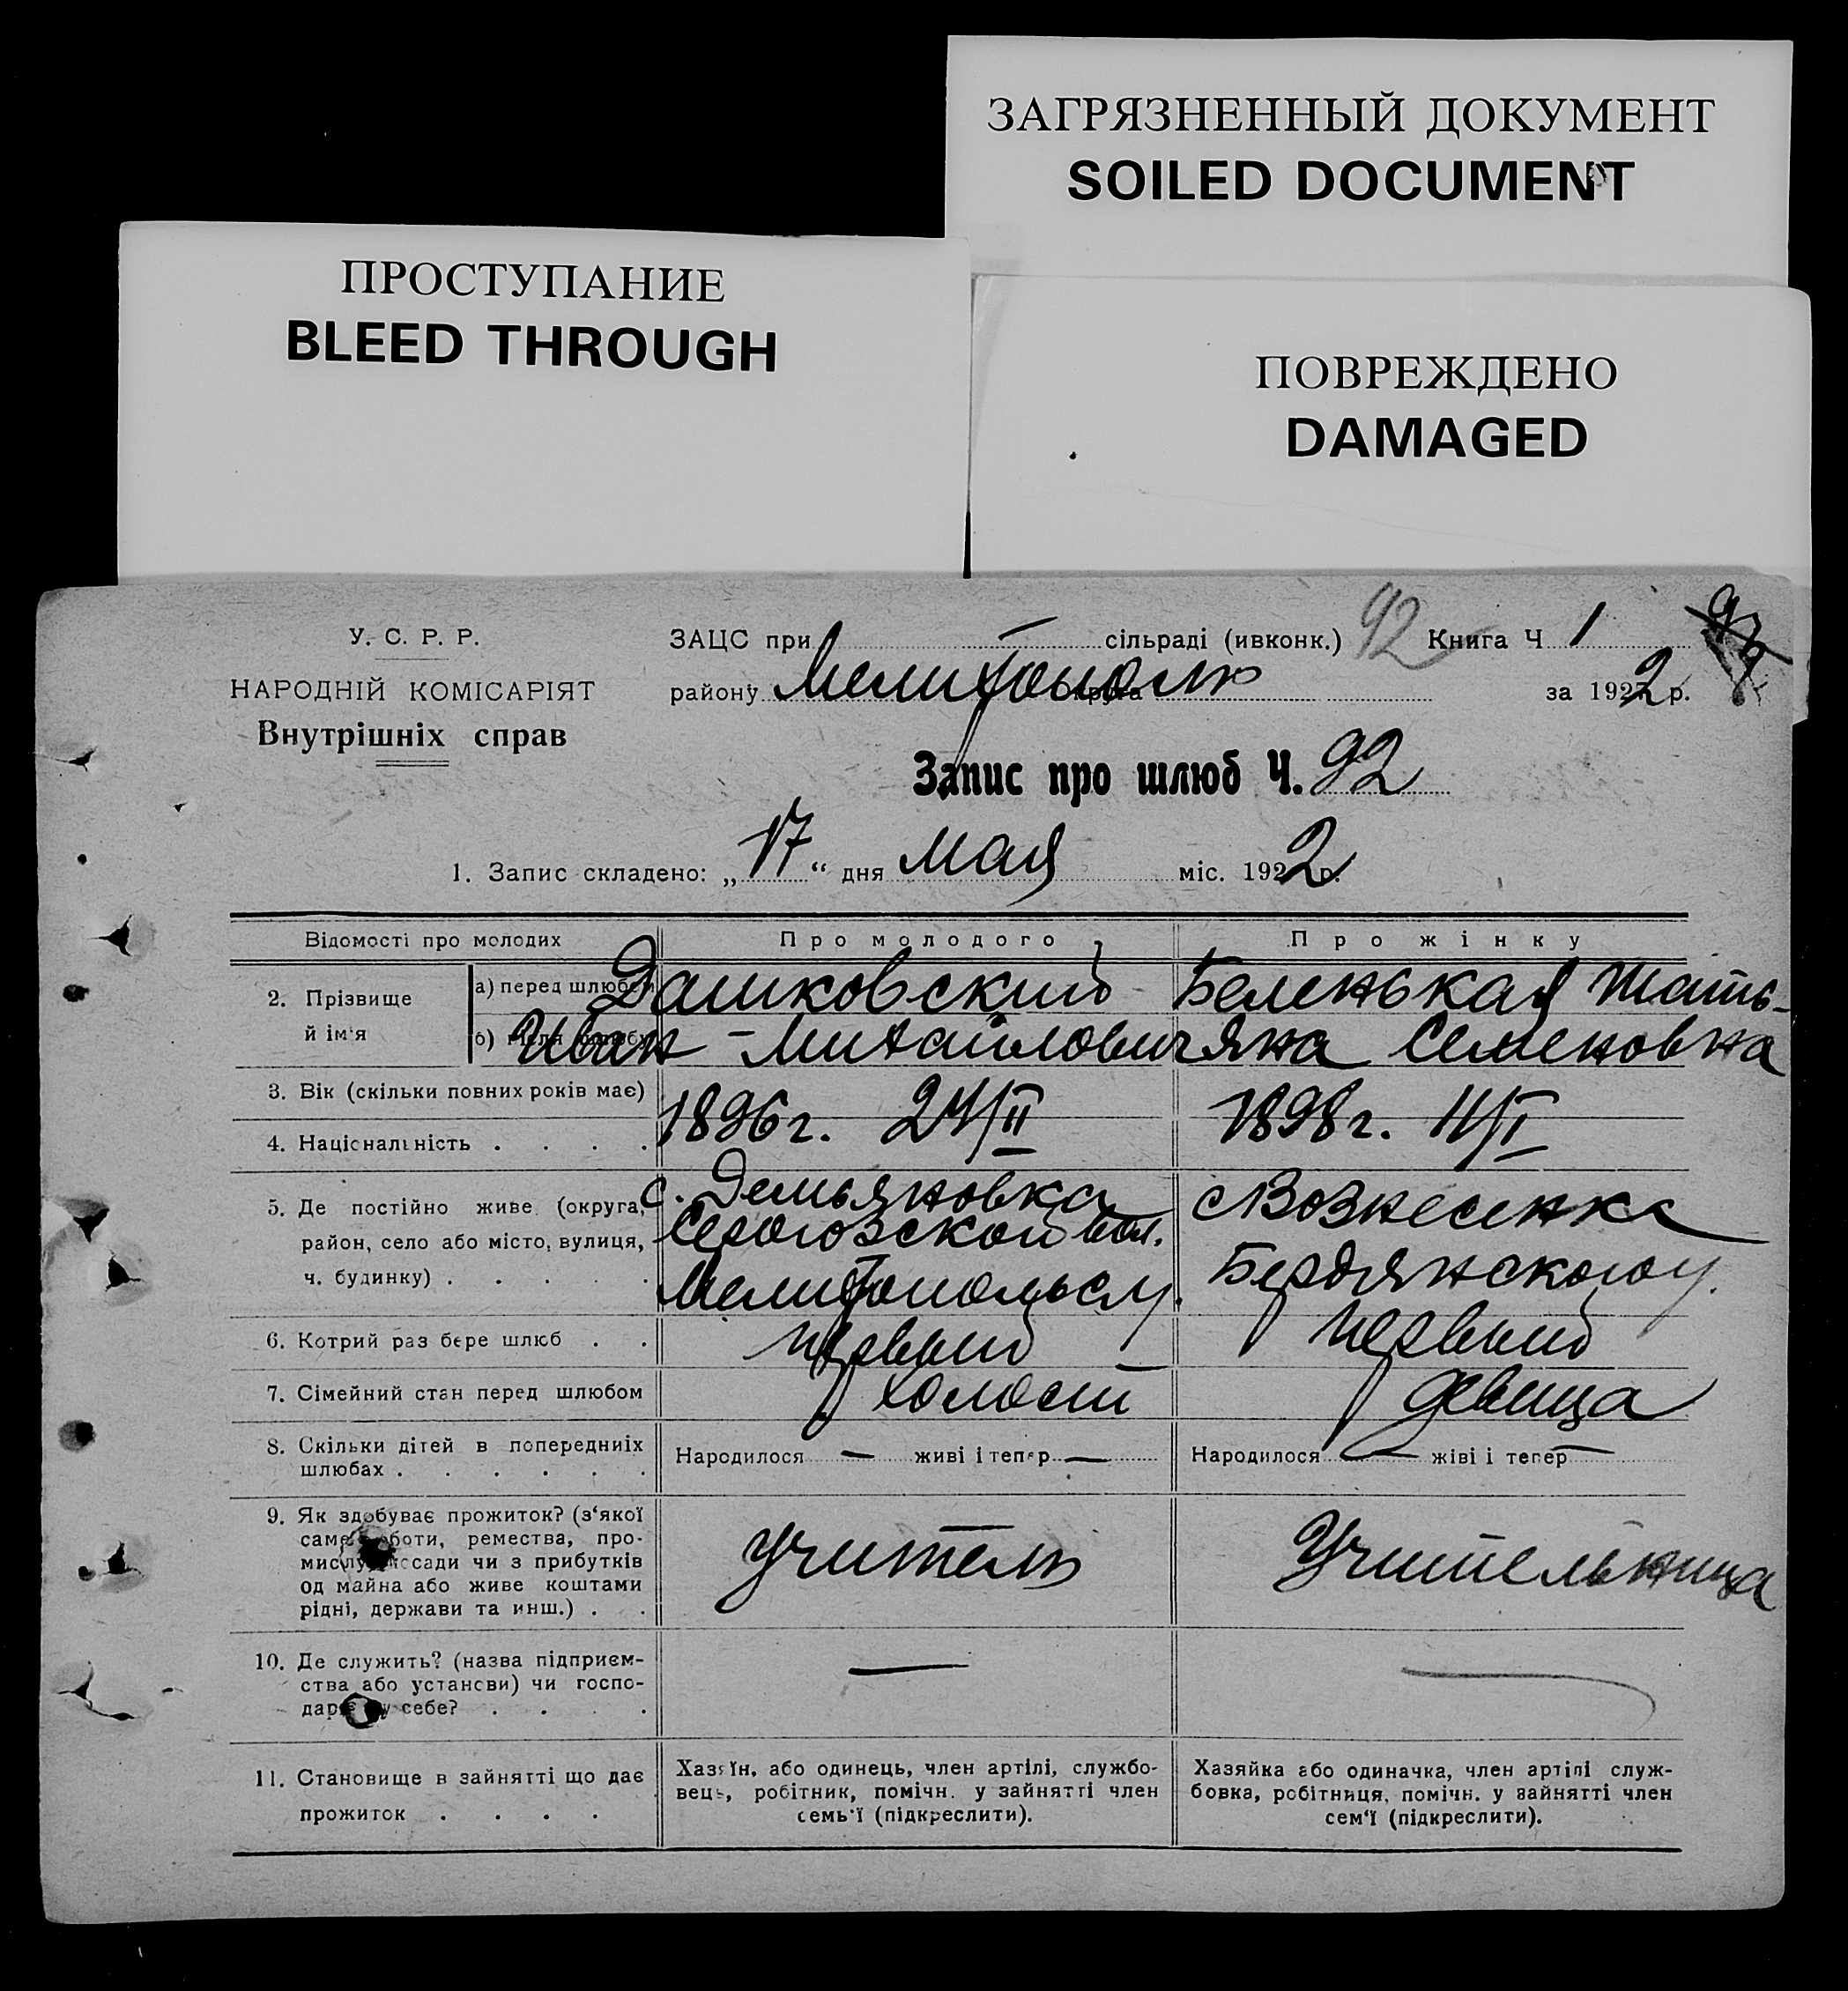 ЗАГРЯЗНЕННЫЙ ДОКУМЕНТ
SOILED DOCUMENT
ПРОСТУПАНИЕ
BLEED THROUGH
ПОВРЕЖДЕНО
DAMAGED
У. С. Р. Р.
НАРОДНІЙ КОМІСАРІЯТ
Внутрішніх справ
ЗАЦС при — сільраді (ивконк.) 92 Книга Ч 1
району Мелитополь округа за 1922 р.
Запис про шлюб Ч. 92
1. Запис складено: „17“ дня мая міс. 1922 р.
Відомості про молодих Про молодого Про жінку
2. Прізвище й ім'я
а) перед шлюбом Дашковский Беленькая Тать-
б) після шлюбу Иван - Михайлович яна Семеновна
3. Вік (скільки повних років має)
1896 г. 24/II 1898 г. 4/I
4. Національність . . . .
5. Де постійно живе (округа, район, село або місто, вулиця, ч. будинку) . . . . .
с. Демьяновка с Вознесенка
Серогозской вол. Бердянского у.
Мелитопольс у.
6. Котрий раз бере шлюб . . первый первый
7. Сімейний стан перед шлюбом холост девица
8. Скільки дітей в попередниіх шлюбах . . . . . .
Народилося — живі і тепер — Народилося — жіві і тепер —
9. Як здобуває прожиток? (з'якої
саме роботи, ремества, про-
мислу, посади чи з прибутків
од майна або живе коштами
рідні, держави та инш.) . .
учитель Учительница
10. Де служить? (назва підприєм-
ства або установи) чи госпо-
дарює у себе? . . . . — —
11. Становище в зайнятті що дає
прожиток . . . .
Хазяїн, або одинець, член артілі, службо-
вець, робітник, помічн. у зайнятті член
семь'ї (підкреслити).
Хазяйка або одиначка, член артілі служ-
бовка, робітниця, помічн. у зайнятті член
сем'ї (підкреслити).